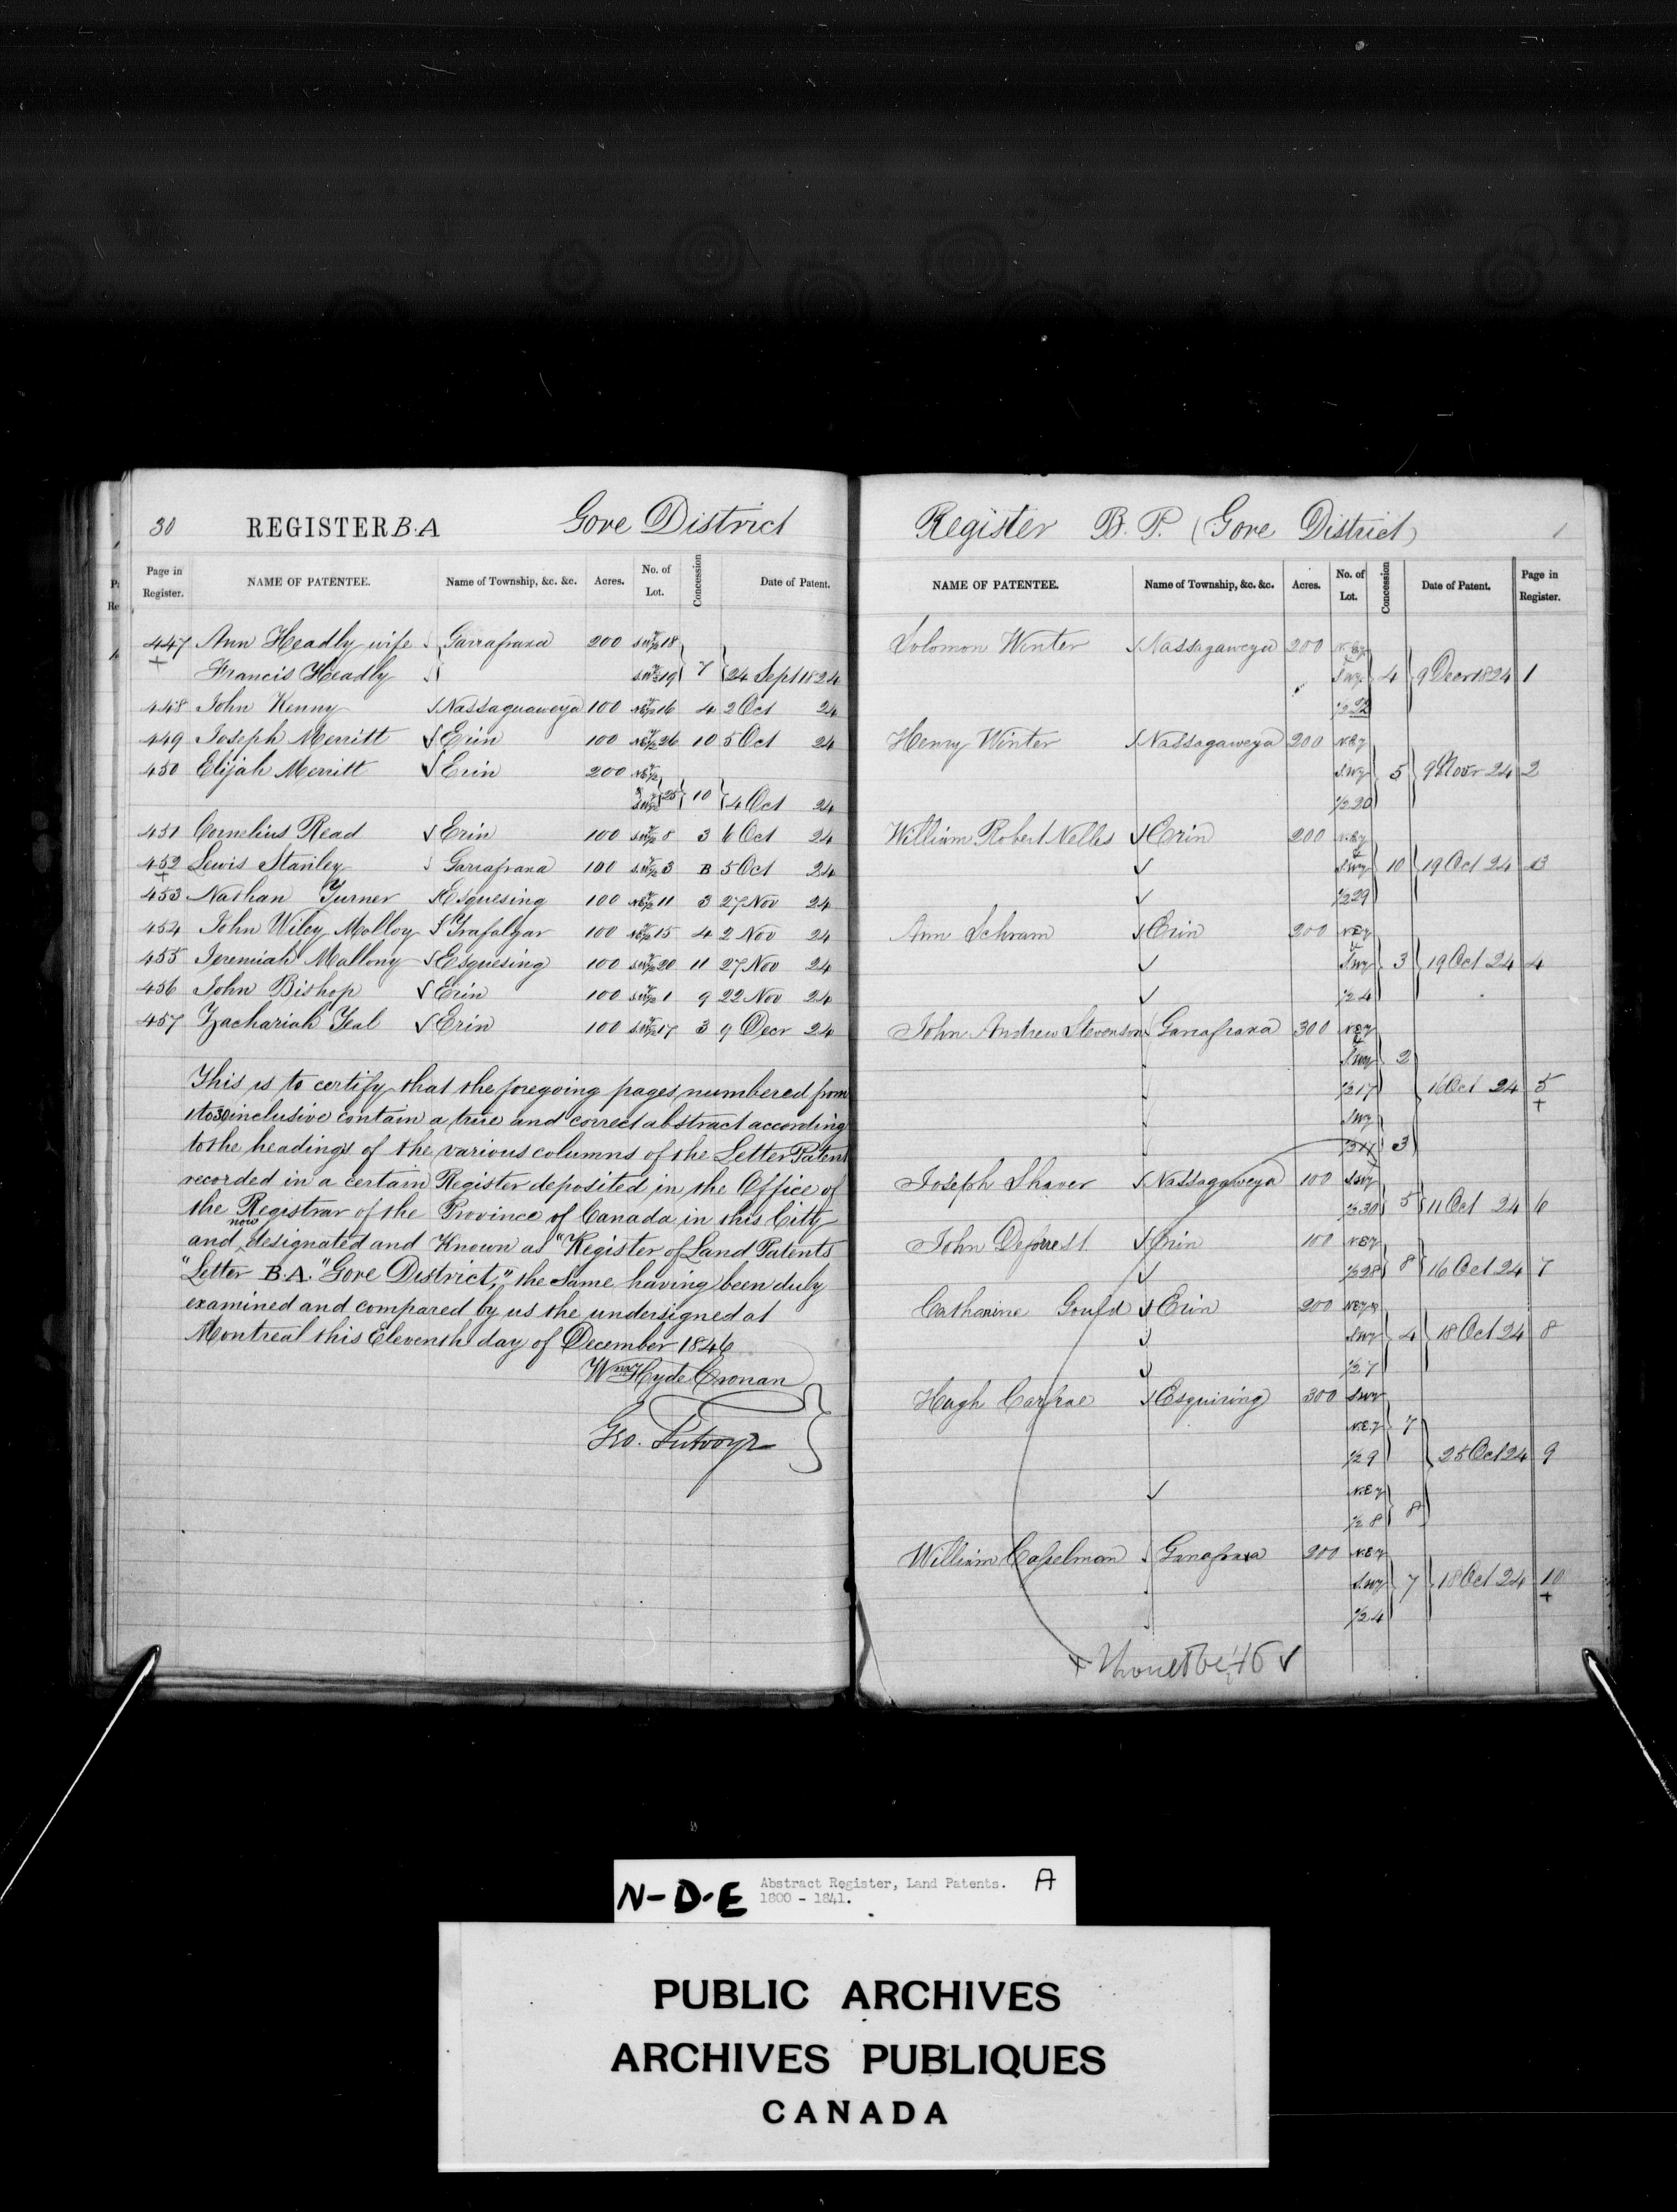 30 REGISTER B.A Gore District
Page in Register. NAME OF PATENTEE. Name of Township, &c. &c. Acres. No. of Lot. Concession Date of Patent.
447 Ann Headly wife √ Garrafraxa 200 S.W½ 18
+ Francis Headly √ S.W½ 19 } 7 { 24 Sept 1824
448 John Kenny √ Nassagaweya 100 NE½ 16 4 2 Oct 24
449 Joseph Merritt √ Erin 100 NE½ 26 10 5 Oct 24
450 Elijah Merritt √ Erin 200 NE½
& S.W½ } 25 } 10 } 4 Oct 24
451 Cornelius Read √ Erin 100 S.W½ 8 3 6 Oct 24
452 Lewis Stanley √ Garrafraxa 100 S.W½ 3 B 5 Oct 24
+
453 Nathan Turner √ Esquesing 100 NE½ 11 3 27 Nov 24
454 John Wiley Molloy √ Trafalgar 100 NE½ 15 4 2 Nov 24
455 Jeremiah Mallony √ Esquesing 100 S.W½ 20 11 27 Nov 24
456 John Bishop √ Erin 100 S.W½ 1 9 22 Nov 24
457 Zachariah Teal √ Erin 100 S.W½ 17 3 9 Decr 24
This is to certify that the foregoing pages numbered from
1 to 30 inclusive contain a true and correct abstract according
to the headings of the various columns of the Letter Patent
recorded in a certain Register deposited in the Office of
the Registrar of the Province of Canada in this City
and now designated and Known as "Register of Land Patents
"Letter B.A. "Gore District," the same having been duly
examined and compared by us the undersigned at
Montreal this Eleventh day of December 1846
Wm Hyde Cronan
Geo. Futvoye
Register B. P. (Gore District) 1
NAME OF PATENTEE. Name of Township, &c. &c. Acres. No. of Lot. Concession Date of Patent. Page in Register.
Solomon Winter √ Nassagaweya 200 N.Ey
& S.Wy } 4 } 9 Decr 1824 1
½ 22
Henry Winter √ Nassagaweya 200 N.Ey
S.Wy } 5 } 9 Novr 24 2
½ 20
William Robert Nelles √ Erin 200 N.Ey
√ & S.Wy } 10 } 19 Oct 24 3
√ ½ 29
Ann Schram √ Erin 200 N.Ey
√ & S.Wy } 3 } 19 Oct 24 4
√ ½ 4
John Andrew Stevenson √ Garrafraxa 300 N.Ey
& S.Wy } 2
½ 17 } 16 Oct 24 5
S.Wy +
½ 17 } 3
Joseph Shaver √ Nassagaweya 100 S.Wy
½ 30 } 5 } 11 Oct 24 6
John Deforrest √ Erin 100 N.Ey
√ ½ 28 } 8 } 16 Oct 24 7
Catharine Gould √ Erin 200 N.Ey &
√ S.Wy } 4 } 18 Oct 24 8
√ ½ 7
Hugh Carfrae √ Esquising 300 S.Wy
N.Ey } 7
½ 9 } 25 Oct 24 9
√ N.Ey
½ 8 } 8
William Caselman √ Garrafraxa 200 N.Ey
S.Wy } 7 } 18 Oct 24 10
½ 4 +
+ Should be 16 √
N-D-E Abstract Register, Land Patents. A
1800 - 1841.
PUBLIC ARCHIVES
ARCHIVES PUBLIQUES
CANADA